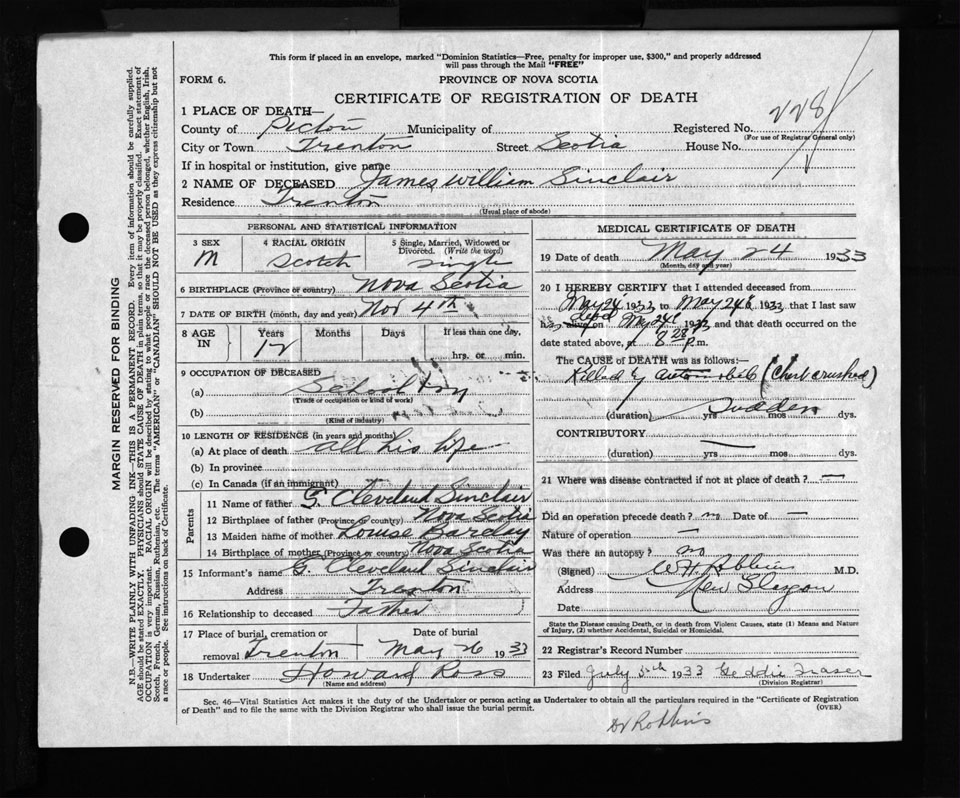 This form if placed in an envelope, marked "Dominion Statistics—Free, penalty for improper use, $300," and properly addressed
will pass through the Mail "FREE"
FORM 6.
PROVINCE OF NOVA SCOTIA
CERTIFICATE OF REGISTRATION OF DEATH
228
1 PLACE OF DEATH—
County of Pictou Municipality of Registered No.
(For use of Registrar General only)
City or Town Trenton Street Scotia House No.
If in hospital or institution, give name
2 NAME OF DECEASED James William Sinclair
Residence Trenton
(Usual place of abode)
PERSONAL AND STATISTICAL INFORMATION
3 SEX 4 RACIAL ORIGIN 5 Single, Married, Widowed or Divorced. (Write the word)
M Scotch single
6 BIRTHPLACE (Province or country) Nova Scotia
7 DATE OF BIRTH (month, day and year) Nov 4th
8 AGE IN Years Months Days If less than one day,
12 hrs. or min.
9 OCCUPATION OF DECEASED
(a) School boy
(Trade of occupation or kind of work)
(b)
(Kind of industry)
10 LENGTH OF RESIDENCE (in years and months)
(a) At place of death all his life
(b) In province
(c) In Canada (if an immigrant)
Parents
11 Name of father G. Cleveland Sinclair
12 Birthplace of father (Province or country) Nova Scotia
13 Maiden name of mother Louise Barclay
14 Birthplace of mother (Province or country) Nova Scotia
15 Informant's name G. Cleveland Sinclair
Address Trenton
16 Relationship to deceased Father
17 Place of burial, cremation or Date of burial
removal Trenton May 26 1933
18 Undertaker Howard Ross
(Name and address)
MEDICAL CERTIFICATE OF DEATH
19 Date of death May 24 1933
(Month, day and year)
20 I HEREBY CERTIFY that I attended deceased from
May 24 1933 to May 24 1933, that I last saw
his alive on May 24 1933 and that death occurred on
date stated above, at 8 28 P.m.
The CAUSE of DEATH was as follows:—
Killed by automobile (Chest crushed)
Sudden
(duration) yrs mos dys.
CONTRIBUTORY —
(duration) yrs mos dys.
21 Where was disease contracted if not at place of death? —
Did an operation precede death? no Date of —
Nature of operation —
Was there an autopsy? no
(Signed) W H Robbins M.D.
Address New Glasgow
Date
State the Disease causing Death, or in death from Violent Causes, state (1) Means and
Nature of Injury, (2) whether Accidental, Suicidal or Homicidal.
22 Registrar's Record Number
23 Filed July 1933 Geddie Fraser
(Division Registrar)
Sec. 46—Vital Statistics Act makes it the duty of the Undertaker or person acting as Undertaker to obtain all the particulars required in the "Certificate of Registration
of Death" and to file the same with the Division Registrar who shall issue the burial permit.
(OVER)
Dr Robbins
MARGIN RESERVED FOR BINDING
N.B.—WRITE PLAINLY WITH UNFADING INK—THIS IS A PERMANENT RECORD. Every item of information should be carefully supplied.
AGE should be stated EXACTLY. PHYSICIANS should STATE CAUSE OF DEATH in plain terms, so that it may be properly classified. Exact statement of
OCCUPATION is very important. RACIAL ORIGIN will be described by stating to what people or race the deceased person belonged, whether English, Irish,
Scotch, French, German, Russian, Ruthenian, etc. The terms "AMERICAN" or "CANADIAN" SHOULD NOT BE USED as they express citizenship but not
a race or people. See instructions on back of Certificate.